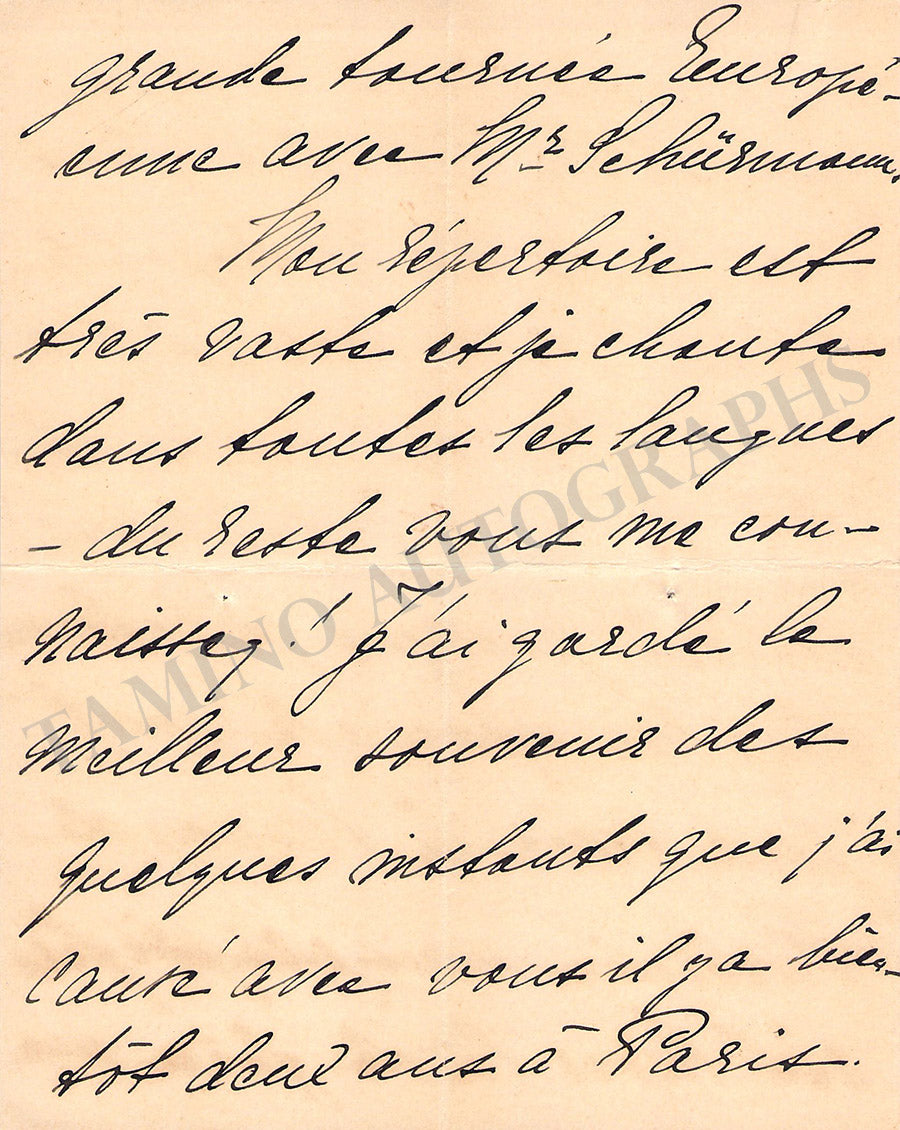 grande tournée Europé-
enne avec Mr Schürmann.
Mon répertoire est
très vaste et je chante
dans toutes les langues
- du reste vous me con-
naissez! J'ai gardé le
meilleur souvenir des
quelques instants que j'ai
causé avec vous il y a bien-
tôt deux ans à Paris.
TAMINO AUTOGRAPHS